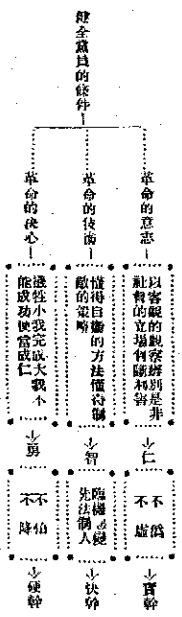 健全黨員的條件
革命的意志
以客觀的觀察辨別是非
社會的立場判斷利害
仁
不偽
不虛
實幹
革命的技術
懂得自衛的方法懂得制
敵的策略
智
隨機應變
先法制人
快幹
革命的決心
犧牲小我完成大我不
能成功便當成仁
勇
不怕
不降
硬幹